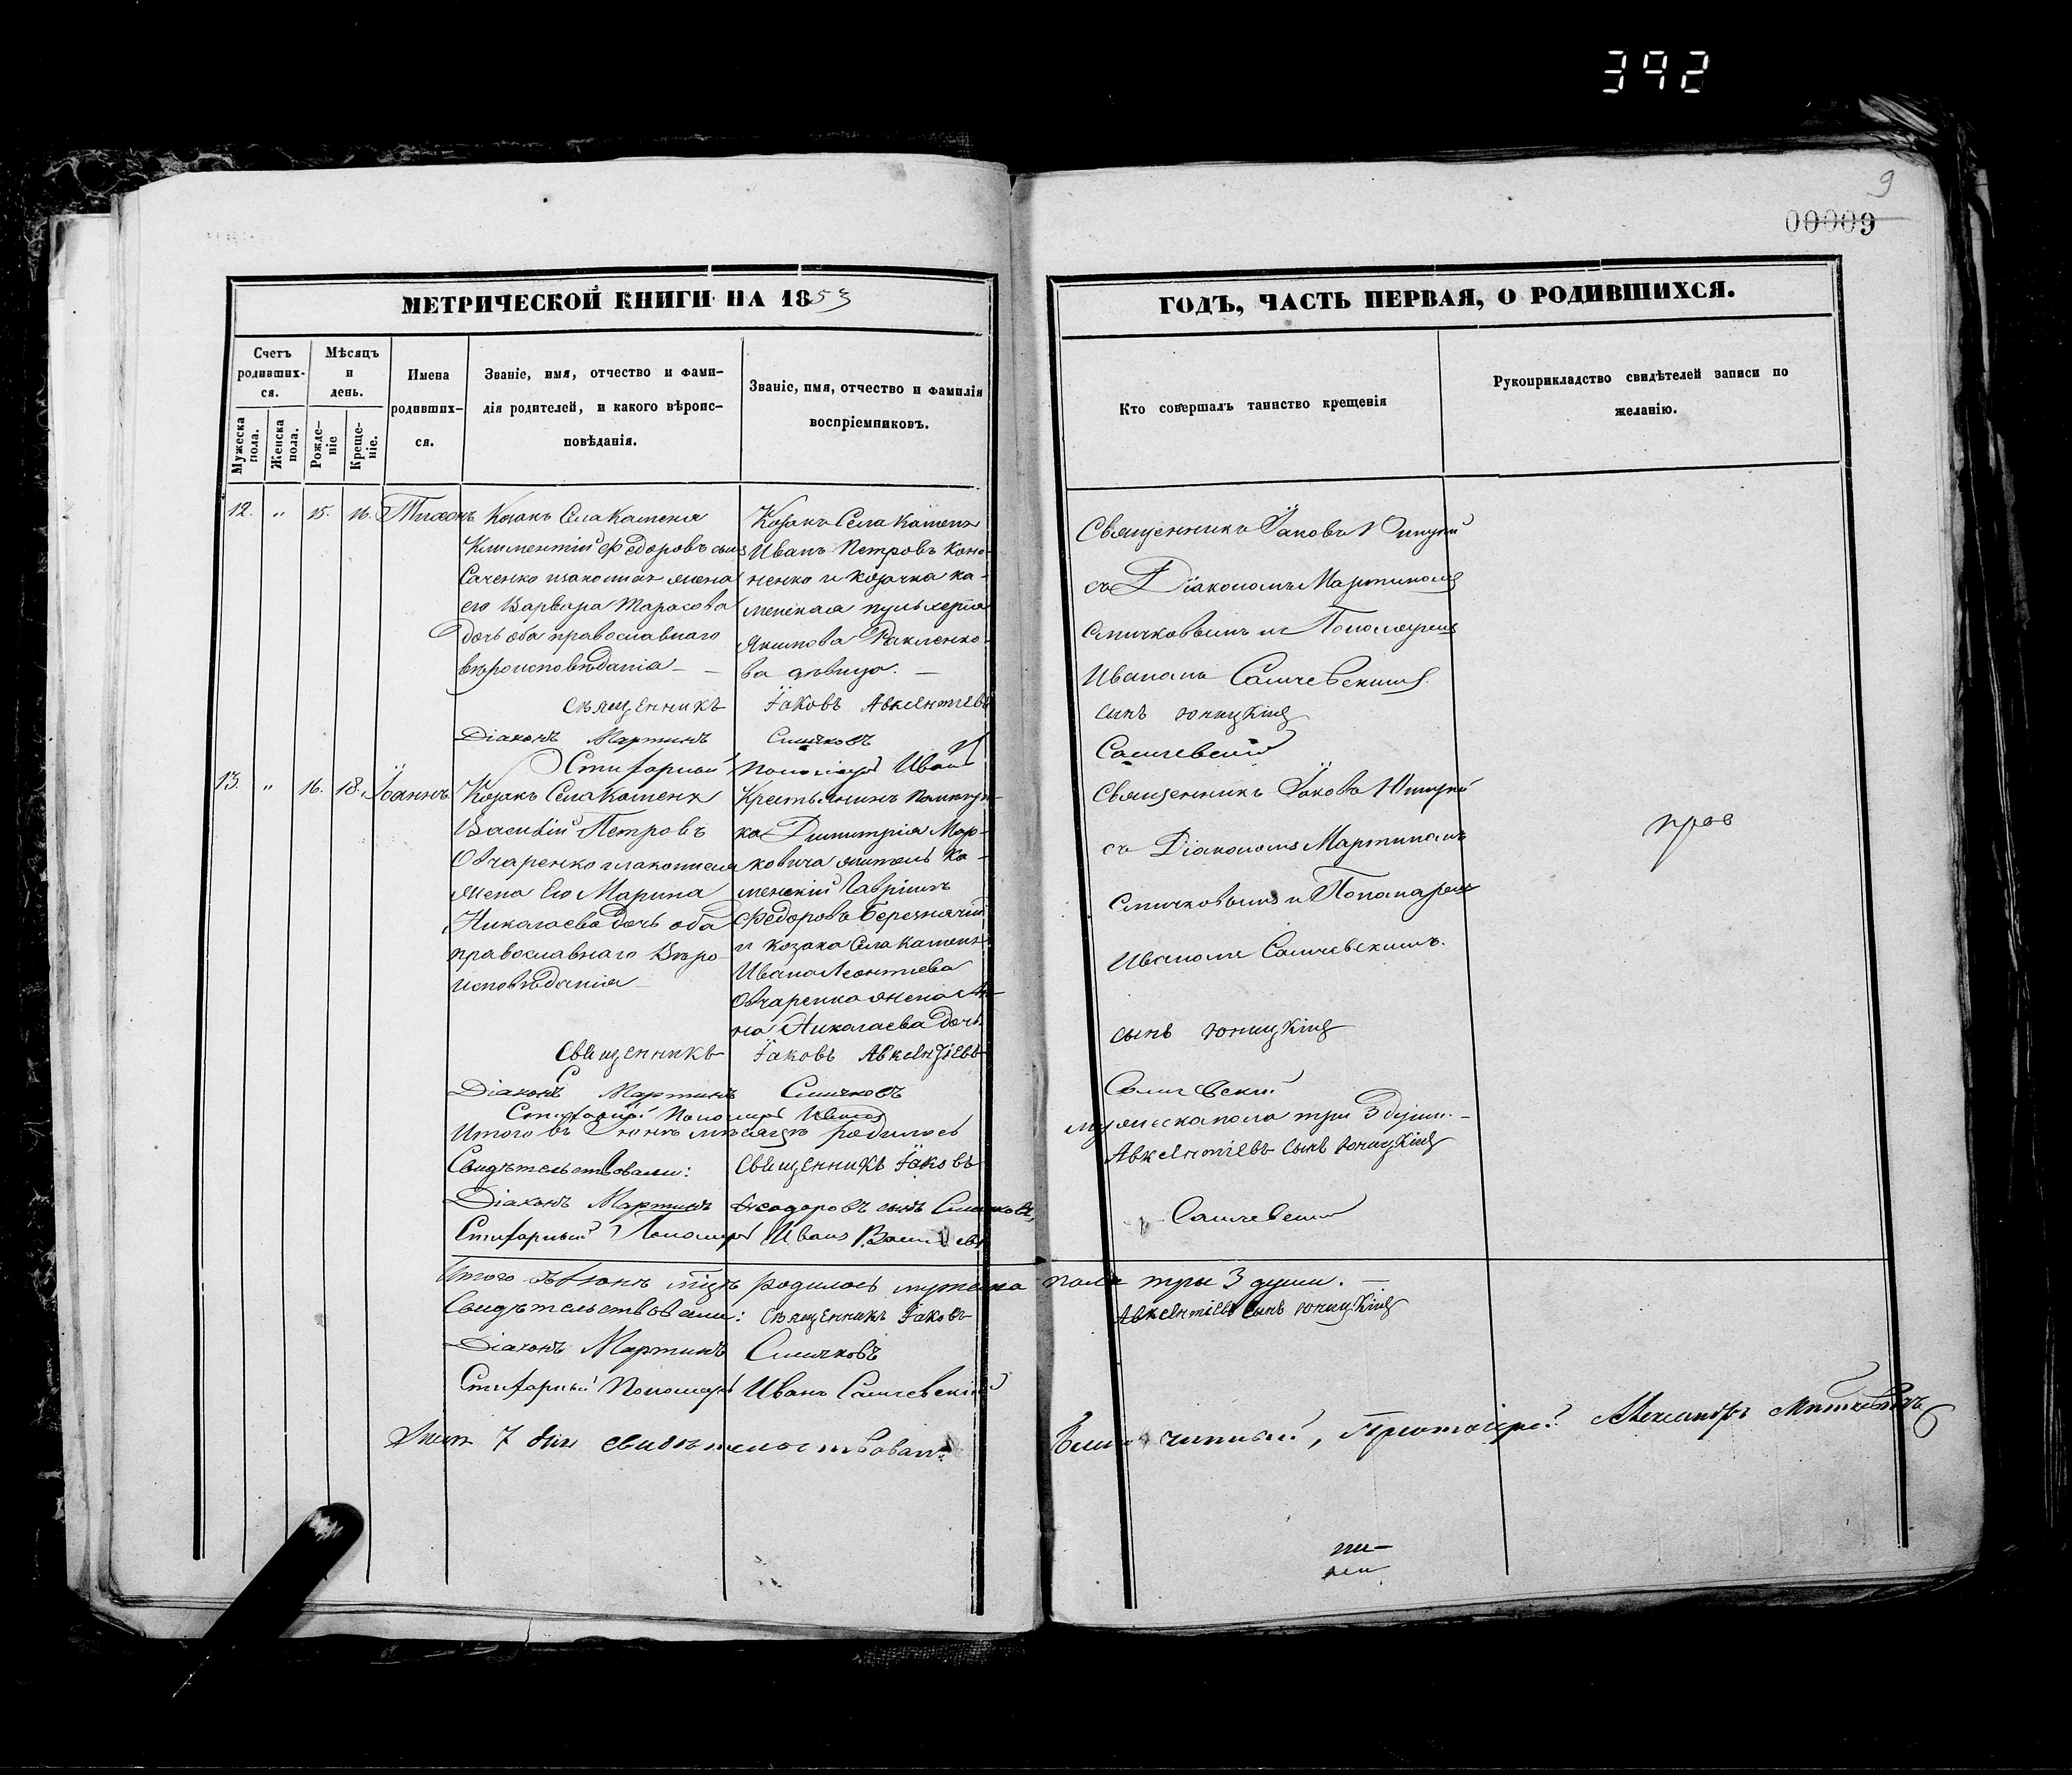 392
9
00009
МЕТРИЧЕСКОЙ КНИГИ НА 1853
ГОДЪ, ЧАСТЬ ПЕРВАЯ, О РОДИВШИХСЯ.
Счетъ родивших-ся.
Мужеска пола.
Женска пола.
Мѣсяцъ и день.
Рожде-ніе
Креще-ніе.
Имена родивших-ся.
Званіе, имя, отчество и фами-
лія родителей, и какого вѣроис-
повѣданія.
Званіе, имя, отчество и фамилія
воспріемниковъ.
Кто совершалъ таинство крещенія
Рукоприкладство свидѣтелей записи по
желанію.
12. " 15. 16. Тихонъ
Козакъ Села Каменя
Климентій Федоровъ сынъ
его Варвара Тарасова
дочь оба православнаго
вѣроисповѣданія
Козакъ Села Каменя
Иванъ Петровъ Коно-
ненко и козачка ка-
менская пульхерія
Якимова
ва дѣвица.
Священникъ Іаковъ Юницкій
съ Діакономъ Мартиномъ
Смичковымъ и Пономаремъ
Иваномъ Самчевскимъ
священникъ Іаковъ Авксентіевъ сынъ юницкій
Діаконъ Мартинъ Смичковъ
Стихарный Пономарь Иванъ Самчевскій
13. " 16. 18. Іоаннъ
Козакъ Села Каменя
Василій Петровъ
Овчаренко и законная
жена Его Марина
Николаева дочь оба
православнаго Вѣро
исповѣданія
Крестьянинъ
ка Димитрія Мар-
ковича житель Ка-
менскій Гавріилъ
Федоровъ
и козака Села Каменя
Ивана Леонтіева
Овчаренка жена Ан-
на Николаева дочь
Священникъ Іаковъ Юницкій
съ Діакономъ Мартиномъ
Смичковымъ и Пономаремъ
Иваномъ Самчевскимъ.
священникъ Іаковъ Авксентіевъ сынъ юницкій
Діаконъ Мартинъ Смичковъ
Стихарный Пономарь Иванъ Самчевскій
Итого въ Іюнѣ мѣсяцѣ родилось мужеска пола три 3 души.
Свидѣтельствовали: священникъ Іаковъ Авксентіевъ сынъ юницкій
Діаконъ Мартинъ Феодоровъ сынъ Смичковъ,
Стихарный Пономарь Иванъ Васильевъ Самчевскій
Итого въ Іюнѣ мцѣ родилось мужеска пола три 3 души.
Свидѣтельствовали: священникъ Іаковъ Авксентіевъ сынъ юницкій
Діаконъ Мартинъ Смичковъ
Стихарный Пономарь Иванъ Самчевскій
7 дня свидѣтельствовалъ Благочинный, Протоіерей Александръ